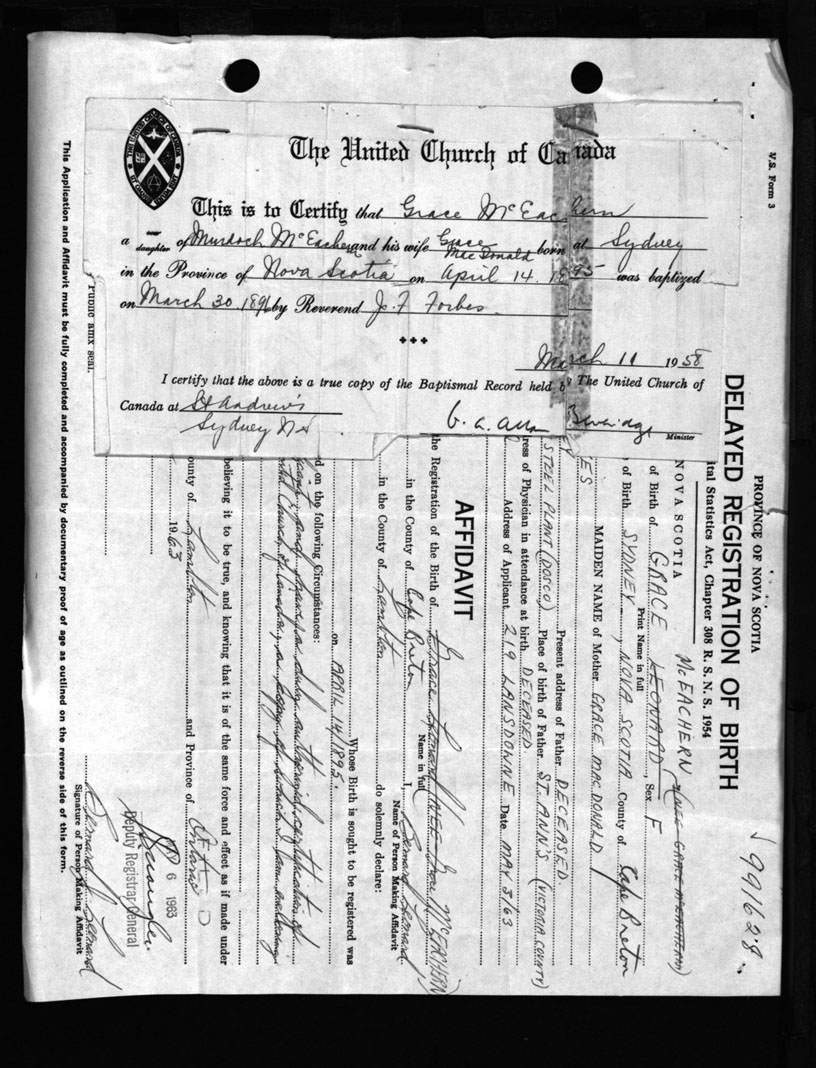 The United Church of Canada
This is to Certify that Grace McEachern
a son daughter of Murdoch McEachern and his wife Grace MacDonald born at Sydney
in the Province of Nova Scotia on April 14. 1895 was baptized
on March 30, 1896 by Reverend J. F Forbes.
March 11 1958
I certify that the above is a true copy of the Baptismal Record held by The United Church of
Canada at St Andrew's
Sydney NS
Minister
V.S. Form 3
PROVINCE OF NOVA SCOTIA
DELAYED REGISTRATION OF BIRTH
ital Statistics Act, Chapter 308 R. S. N. S. 1954
991628
NOVA SCOTIA McEACHERN
of Birth of GRACE LEONARD, Sex F
Print Name in full
of Birth SYDNEY, NOVA SCOTIA County of Cape Breton
MAIDEN NAME of Mother GRACE MACDONALD
Present address of Father DECEASED.
STEEL PLANT (DOSCO) Place of birth of Father ST. ANN'S (VICTORIA COUNTY)
ress of Physician in attendance at birth DECEASED
Address of Applicant 219 LANSDOWNE Date MAY 3/63
AFFIDAVIT
the Registration of the Birth of Grace Leonard
Name in full
in the County of Cape Breton I, Bernard Leonard
Name of Person Making Affidavit
in the County of Lambton do solemnly declare:
Whose Birth is sought to be registered was
on APRIL 14, 1895.
d on the following Circumstances:
believing it to be true, and knowing that it is of the same force and effect as if made under
ounty of Lambton and Province of Ontario
1963
6 1963
Deputy Registrar General
Bernard Leonard
Signature of Person Making Affidavit
This Application and Affidavit must be fully completed and accompanied by documentary proof of age as outlined on the reverse side of this form.